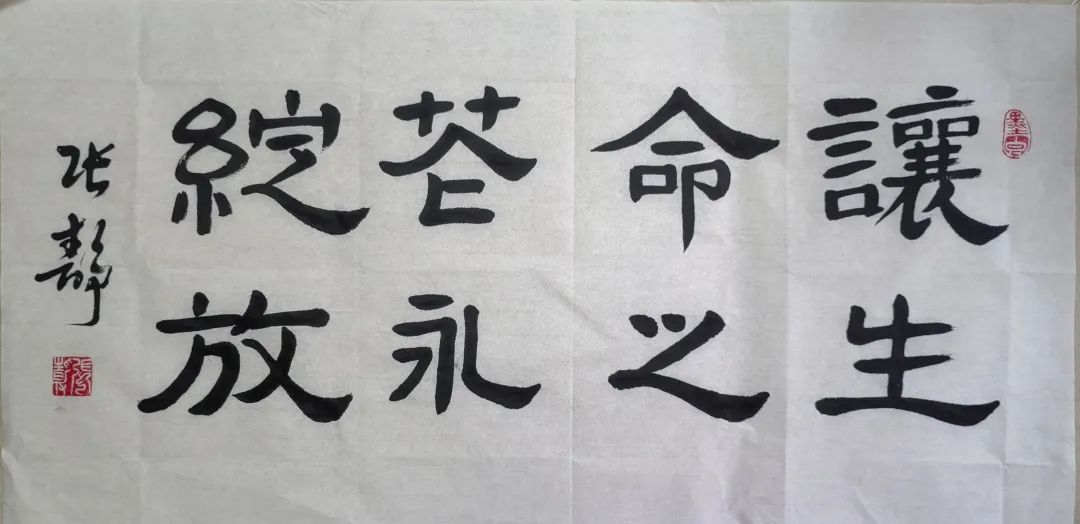 讓生
命之
花永
綻放
张靜